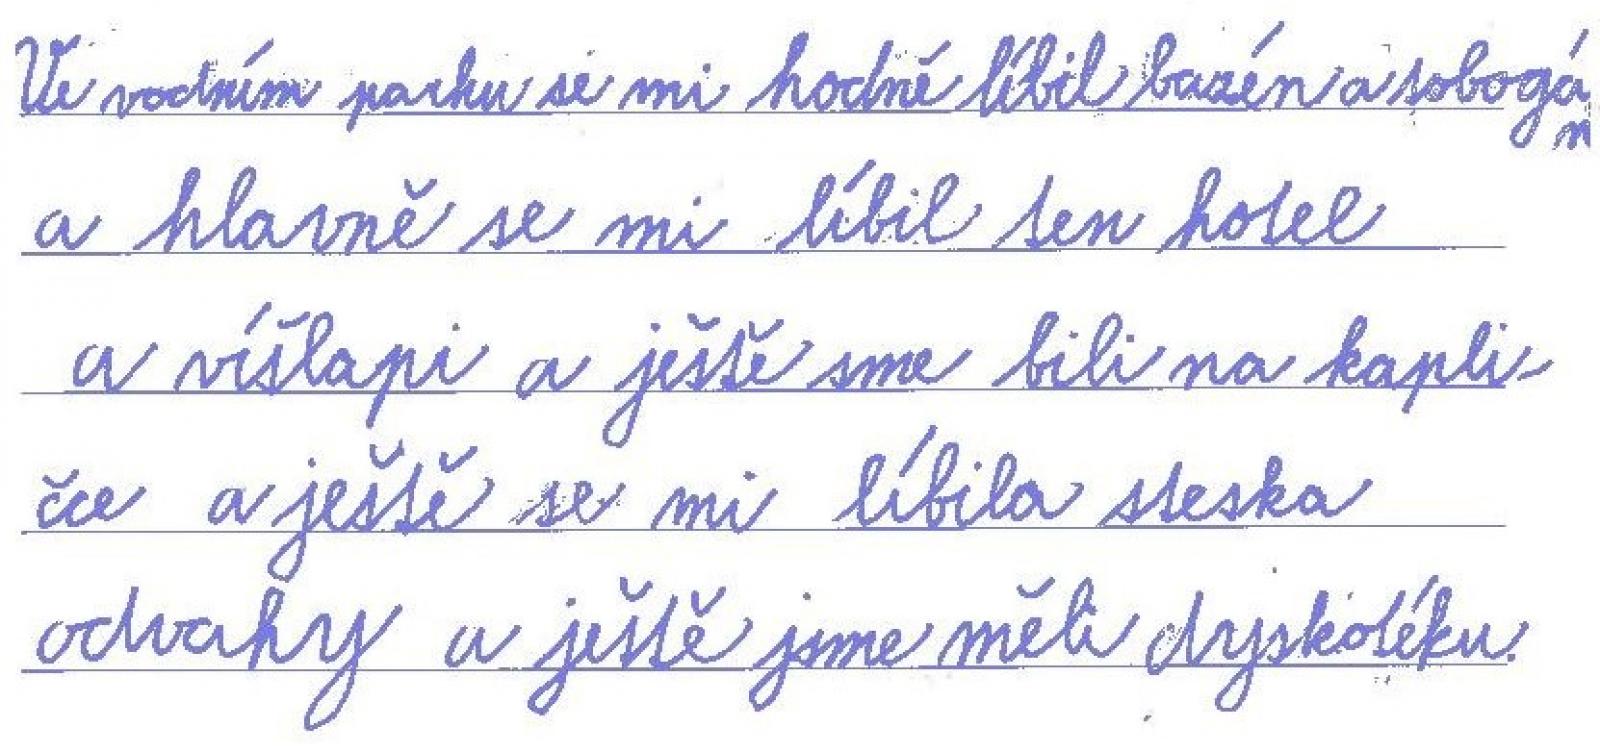 Ve vodním parku se mi hodně líbil bazén a tobogán
a hlavně se mi líbil ten hotel
a víšlapi a ještě sme bili na kapli-
čce a ještě se mi líbila steska
odvahy a ještě jsme měli dyskotéku.